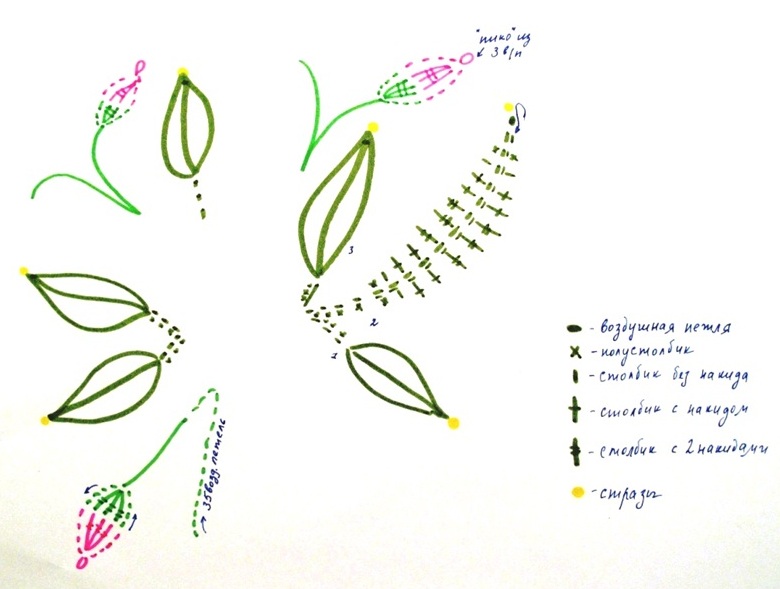 "пико" из
3 в/п
3
2
1
35 возд. петель
- воздушная петля
- полустолбик
- столбик без накида
- столбик с накидом
- столбик с 2 накидами
- стразы